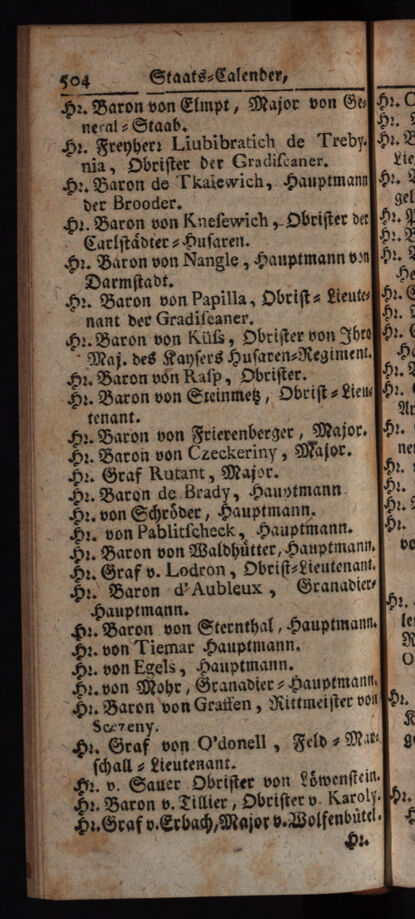 504 Staats-Calender,
Hr. Baron von Elmpt, Major von Ge-
neral-Staab.
Hr. Freyherr Liubibratich de Treby-
nia, Obrister der Gradiscaner.
Hr. Baron de Tkalewich, Hauptmann
der Brooder.
Hr. Baron von Knesewich, Obrister der
Carlstädter-Husaren.
Hr. Baron von Nangle, Hauptmann von
Darmstadt.
Hr. Baron von Papilla, Obrist-Lieute-
nant der Gradiscaner.
Hr. Baron von Küss, Obrister von Ihro
Maj. des Kaysers Husaren-Regiment.
Hr. Baron von Rasp, Obrister.
Hr. Baron von Steinmetz, Obrist-Lieu-
tenant.
Hr. Baron von Frierenberger, Major.
Hr. Baron von Czeckeriny, Major.
Hr. Graf Rutant, Major.
Hr. Baron de Brady, Hauptmann
Hr. von Schröder, Hauptmann.
Hr. von Pablitscheck, Hauptmann.
Hr. Baron von Waldhütter, Hauptmann.
Hr. Graf v. Lodron, Obrist-Lieutenant.
Hr. Baron d'Aubleux, Granadier-
Hauptmann.
Hr. Baron von Sternthal, Hauptmann.
Hr. von Tiemar Hauptmann.
Hr. von Egels, Hauptmann.
Hr. von Mohr, Granadier-Hauptmann.
Hr. Baron von Graffen, Rittmeister von
Hr. Graf von O'donell, Feld-Mar-
schall-Lieutenant.
Hr. v. Sauer Obrister von Löwenstein.
Hr. Baron v. Tillier, Obrister v. Karoly.
Hr. Graf v. Erbach, Major v. Wolfenbütel.
Hr.